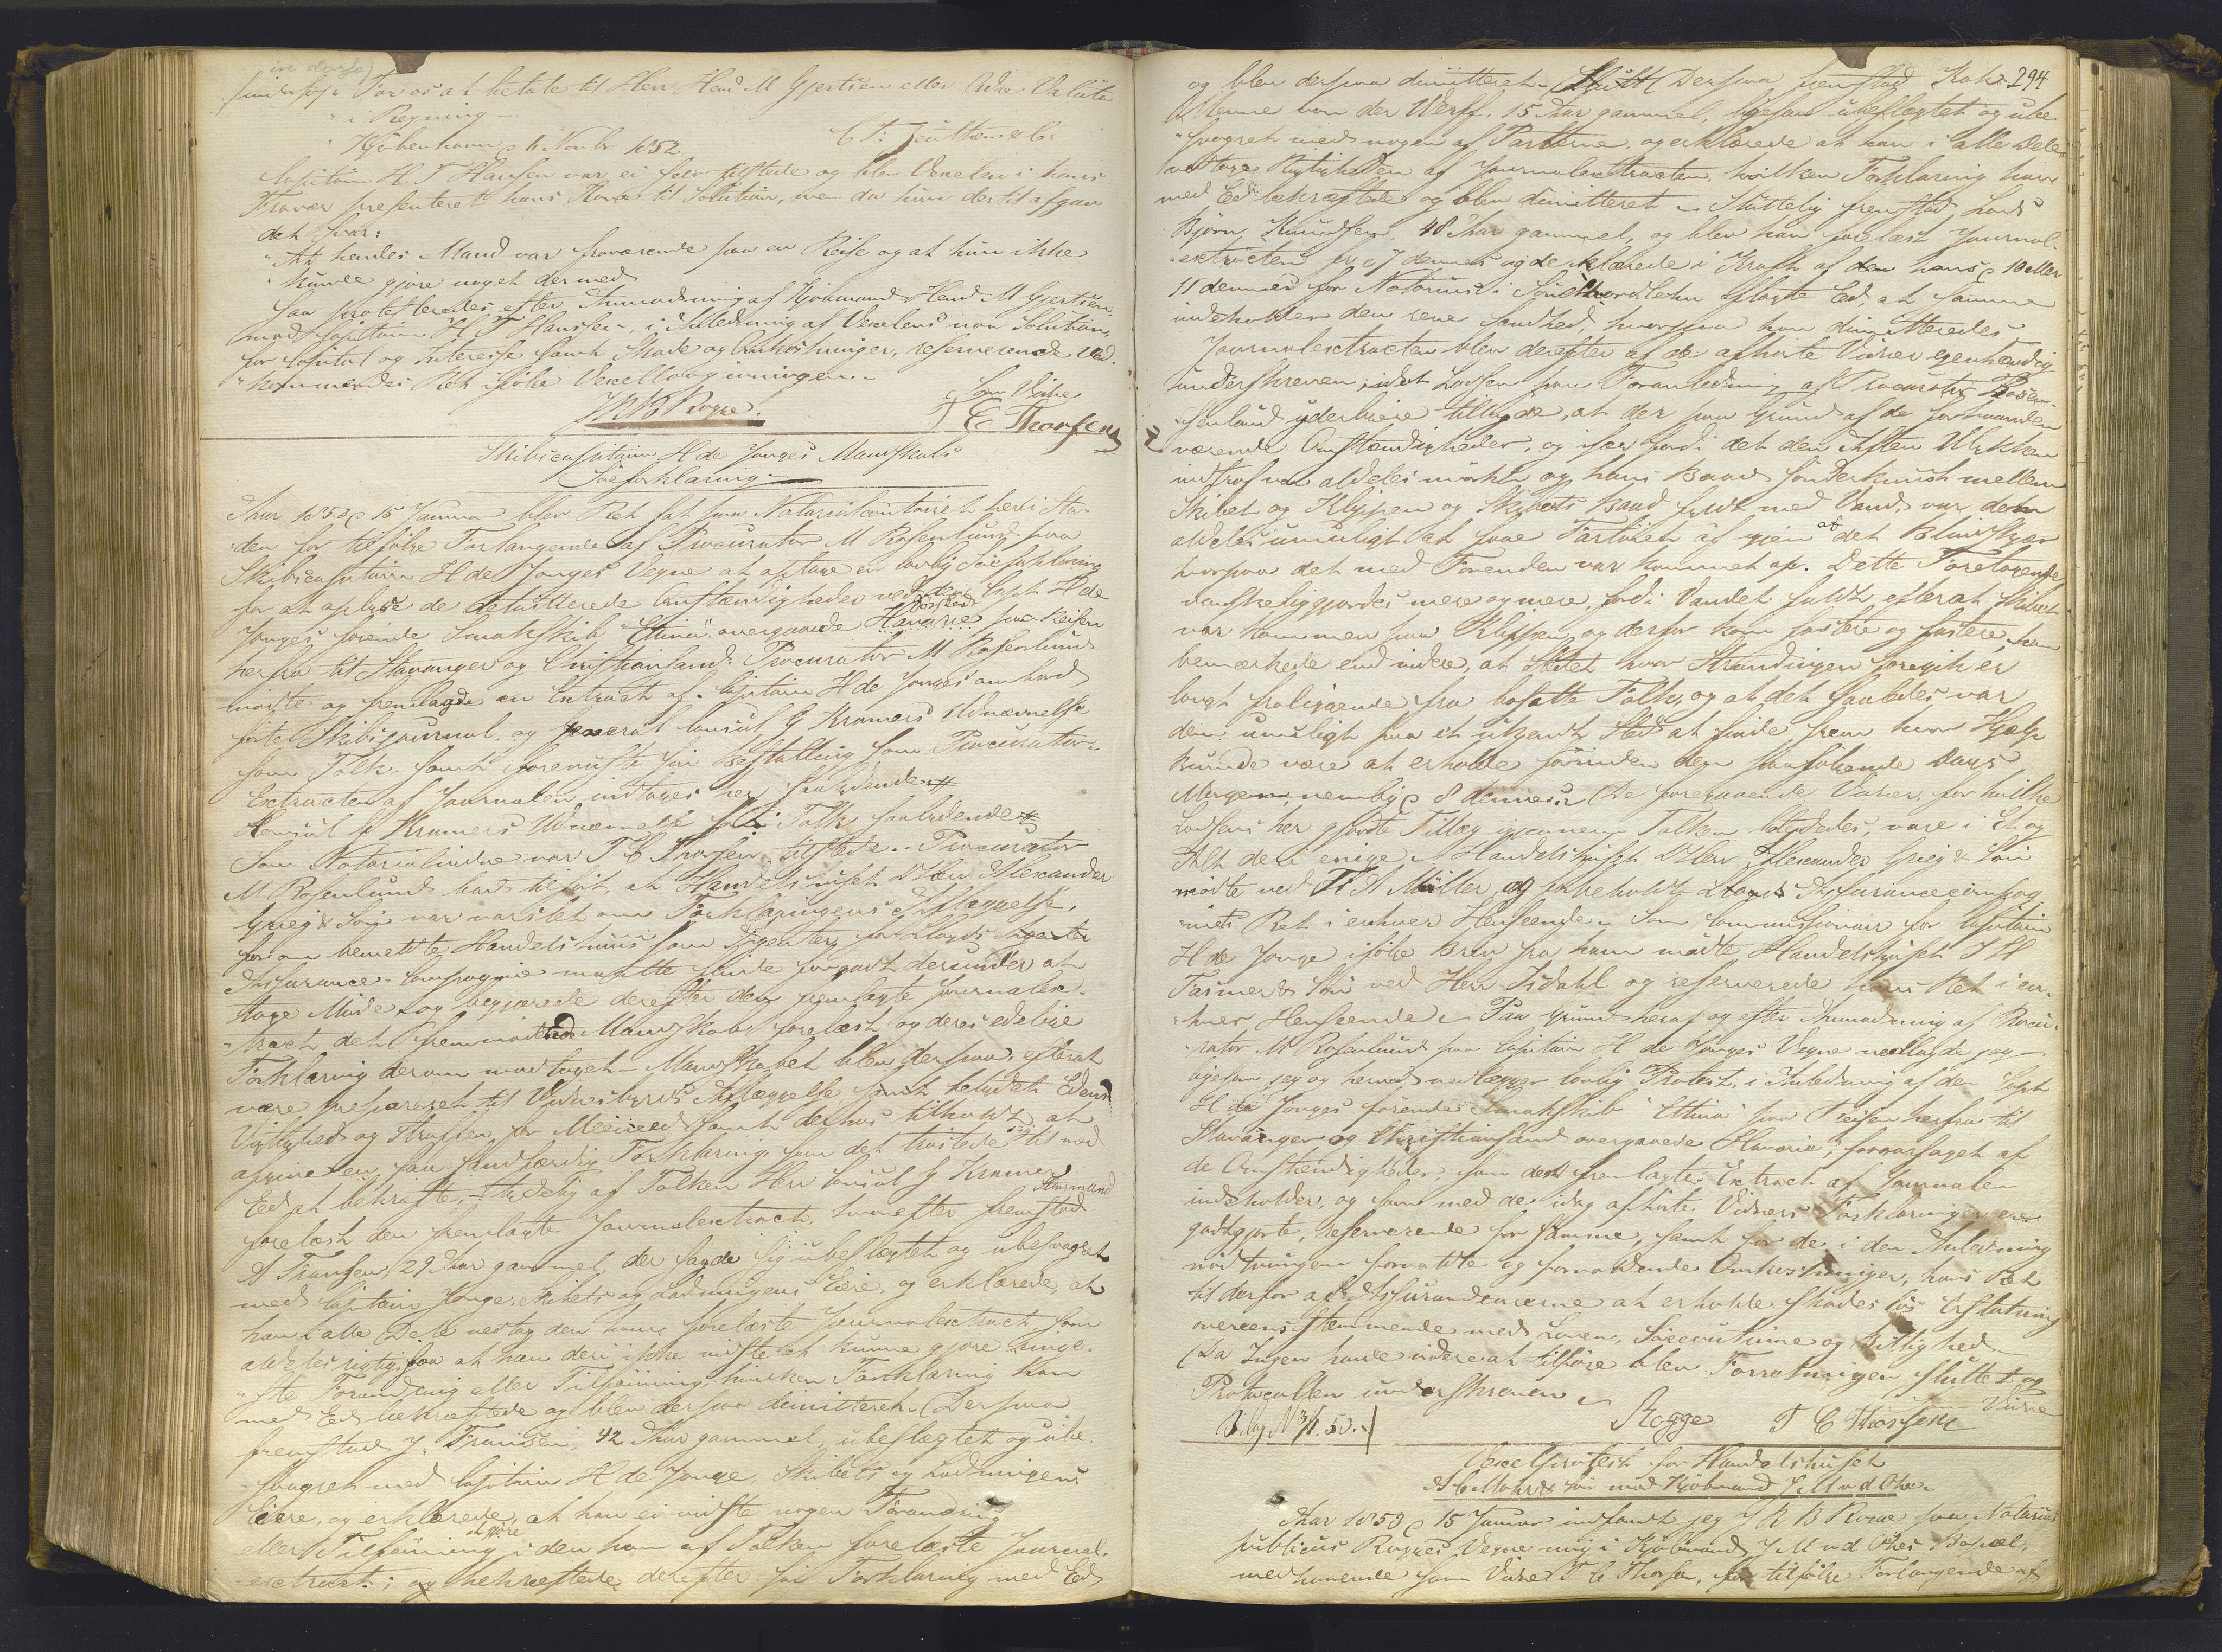 in dorso)
For os at betale til Herr Hend M Gjertsen eller Ordre Valuta
"i Regning –
Kjöbenhavn p 6 Novbr 1852
Capitain H. T Hansen var ei selv tilstede og blev Vexelen i hans
Fravær presenteret hans Kone til Solution, men da hun dertil afgav
det Svar:
"At hendes Mand var fraværende paa en Reise og at hun ikke
"kunde gjøre noget dermed
Saa protesteredes efter Anmodning af Kjøbmand Hend M Gjertsen,
mod Capitain H T Hansen, i Anledning af Vexelens non Solution,
for Capital og Interesse samt Skade og Omkostninger, reserverende Ved-
"kommendes Ret ifölge Vexellovgivningen.
Som Vidne
T E Thorsen
Skibscapitain H de Jonges Mandskabs
Søeforklaring
Aar 1853 p 15 Januar blev Ret sat paa Notarialcontoiret her i Sta-
den for tilfølge Forlangende af Procurator M Rosenlund paa
Skibscapitain H de Jonges Vegne at optage en lovlig Søeforklaring
for at oplyse de detaillerede Omstændigheder ved den Capt H de
Jonges førende Smakskib "Ettina" overgaaede Havarie paa Reisen
herfra til Stavanger og Christiansand. Procurator M Rosenlund
mødte og fremlagde en Extract af Capitain H de Jonges ombord
førte Skibsjournal og General Consul G Kramers Udnævnelse
som Tolk, samt foreviste sin Bestalling som Procurator –
Extracten af Journalen indtages her saalydende #
Consul G Kramers Udnævnelse til Tolk saalydende #
Som Notarialvidne var T C Thorsen tilstede. – Procurator
M Rosenlund bad tilført, at Handelshuset D'Herr Alexander
Grieg & Søn var varslet om Forklaringens Aflæggelse,
for om bemeldte Handelshuus som Agenter for Lloyds
Assurance-Compagnie maatte finde forgodt derunder at
tage Møde og begjærede derefter den fremlagte Journalex-
"tract det fremmødte Mandskab forelæst og deres edelige
Forklaring derom modtaget – Mandskabet blev derpaa, efterat
være præpareret til Vidnesbyrds Aflæggelse, samt betydet Edens
Vigtighed og Straffen for Meened samt derhos tilholdt at
afgive en saa sandfærdig Forklaring, som det trøstede sig til med
Eed at bekræfte, – tydelig af Tolken Herr Consul G Kramer
forelæst den fremlagte Journalextract, hvorefter fremstod Styrmand
A Fransen, 29 Aar gammel, der sagde sig ubeslægtet og ubesvogret
med Capitain Jonge, Skibets og Ladningens Eiere, og erklærede, at
han i alle Dele vedtog den ham forelæste Journalextract som
aldeles rigtig, saa at han deri ikke vidste at kunne gjøre ringe-
"ste Forandring eller Tilføining, hvilken Forklaring han
med Eed bekræftede og blev derpaa dimitteret. (Derpaa
fremstod J. Fransen, 42 Aar gammel, ubeslægtet og ube-
"svogret med Capitain H de Jonge, Skibets og Ladningens
Eiere, og erklærede, at han ei vidste nogen Forandring
eller Tilføining at gjøre i den ham af Tolken forelæste Journal-
"extract; og bekræftede derefter sin Forklaring med Eed
294
og blev derpaa dimitteret – Derpaa fremstod Kok
Menne van der Werff, 15 Aar gammel, ligesom ubeslægtet og ube-
"svogret med nogen af Parterne, og erklærede at han i alle Dele
vedtage Rigtigheden af Journalextracten, hvilken Forklaring han
med Eed bekræftede og blev dimitteret – Sluttelig fremstod Lods
Bjørn Knudsen, 48 Aar gammel, og blev han forelæst Journal-
"extracten for p 7 dennes og de erklærede i Kraft af den hans p 10 eller
11 dennes for Notarius i Söndhordlehn aflagte Eed, at samme
indeholder den rene Sandhed, hvorpaa han dimitteredes
Journalextracten blev derefter af de afhørte Vidner egenhændig
underskreven, idet Lodsen paa Foranledning af Procurator Rosen-
"lund yderligere tilføiede, at der paa Grund af de forhaanden
værende Omstændigheder, og især fordi det den Aften Ulykken
indtraf var aldeles mørkt og hans Baad sønderknust mellem
Skibet og Klippen og Skibets Baad fyldt med Vand, var dem
aldeles umuligt at faae Fartøiet af igjen af det Blindskjær
hvorpaa det med Forenden var kommet op. Dette Foretagende
vanskeliggjordes mere og mere, fordi Vandet faldt efterat Skibet
var kommen paa Klippen og derfor kom fastere og fastere, han
bemærkede end videre, at Stedet hvor Strandingen foregik er
langt fraliggende fra bosatte Folk, og at det saaledes var
dem umuligt paa et ukjendt Sted at finde frem hvor Hjælp
kunde være at erholde førinden den paafølgende Dags
Morgen, nemlig p 8 dennes – (De foregaaende Vidner, for hvilke
Lodsens her gjorte Tillæg igjennem Tolken betydedes, vare i Et og
Alt deri enige – Handelshuset D'Herr Alexander Grieg & Søn
mødte ved Fr. A Müller og forbeholdt Lloyds Assurancecompag-
"niets Ret i enhver Henseende – Som Commissionair for Capitain
H de Jonge ifølge Brev fra ham mødte Handelshuset J H
Fasmer & Søn ved Herr Isdahl og reserverede hans Ret i en-
"hver Henseende – Paa Grund heraf og efter Anmodning af Procu-
"rator M Rosenlund paa Capitain H de Jonges Vegne nedlagde jeg –
ligesom jeg og herved nedlægger lovlig Protest, i Anledning af den Capt
H de Jonges førende Smakskib "Ettina" paa Reisen herfra til
Stavanger og Christiansand overgaaede Havarie, foraarsaget af
de Omstændigheder, som den fremlagte Extract af Journalen
indeholder, og som med de idag afhørte Vidners Forklaringer ere
godtgjorte, reserverende for samme, samt for de i den Anledning
nødtvungen forvoldte og forvoldende Omkostninger, hans Ret
til derfor af Assurandeurerne at erholde skadesløs Erstatning
overeensstemmende med Loven, Søecoutume og Billighed –
(Da Ingen havde videre at tilføre blev Forretningen sluttet og
Protocollen underskreven –
Vidne
Rogge T C Thorsen
Vexelprotest for Handelshuset
A C Mohr & Søn mod Kjøbmand J. M v d Ohe.
Aar 1853 p 15 Januar indfandt jeg J R B Rogge paa Notarius
publicus Rogges Vegne mig i Kjøbmand J M v d Ohes Bopæl,
medhavende som Vidne T C Thorsen, for tilfølge Forlangende af